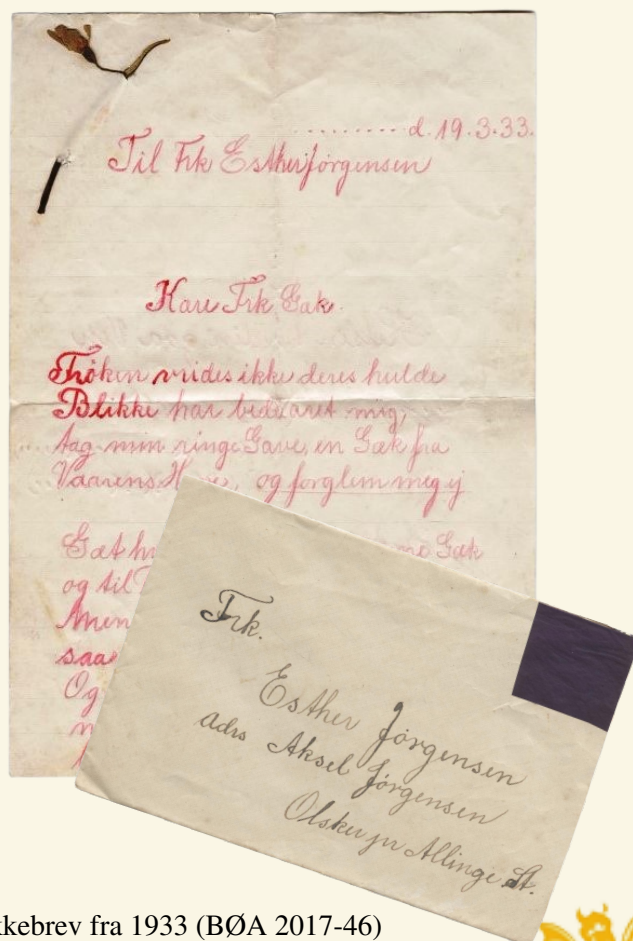 d. 19.3.33.
Til Frk Esther Jörgensen
Kære Frk Gæk.
Fröken vrides ikke deres hulde
Blikke har bedaaret mig,
tag min ringe Gave, en Gæk fra
Vaarens Have, og forglem mig ej
Gæt Gæk
og til
Men
saa
Og
Frk.
Esther Jörgensen
adrs Aksel Jörgensen
Olsker pr Allinge St.
kkebrev fra 1933 (BØA 2017-46)